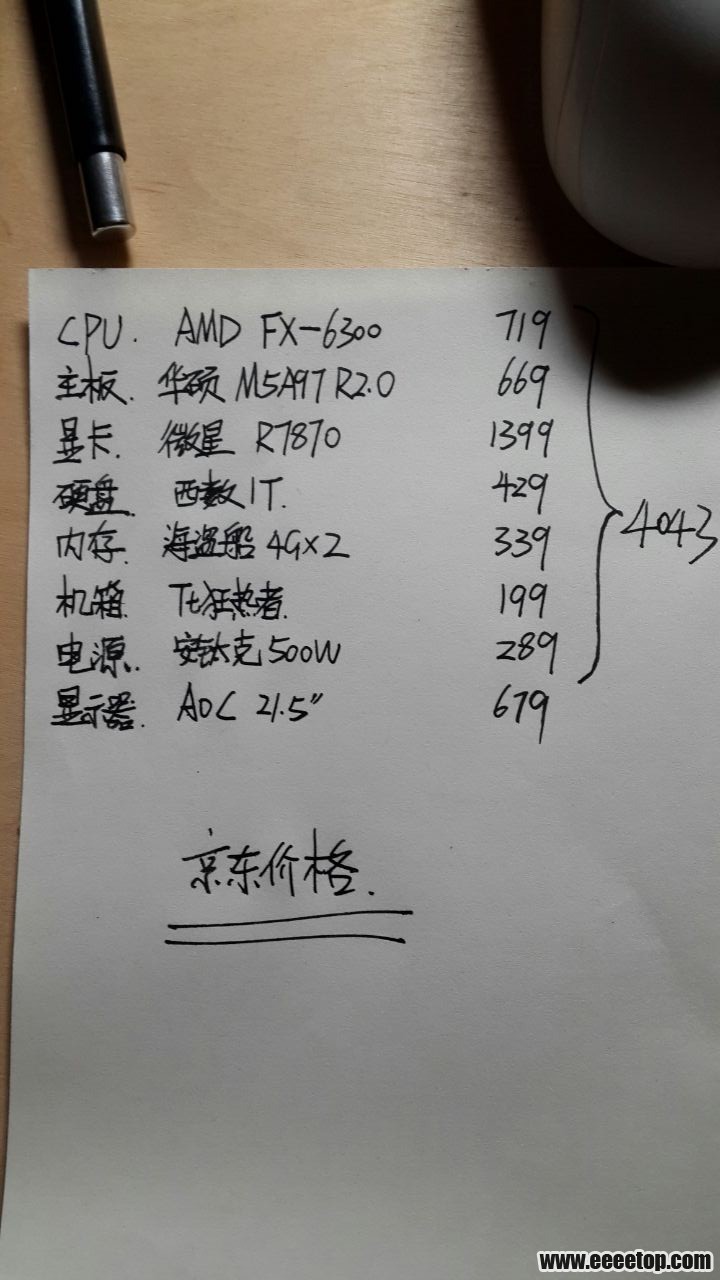 CPU. AMD FX-6300 719
主板. 华硕 M5A97 R2.0 669
显卡. 微星 R7870 1399
硬盘 西数 1T. 429
内存. 海盗船 4G×2 339
机箱. Tt狂热者. 199
电源. 安钛克 500W 289
4043
显示器. AOC 21.5" 679
京东价格.
www.eeeetop.com